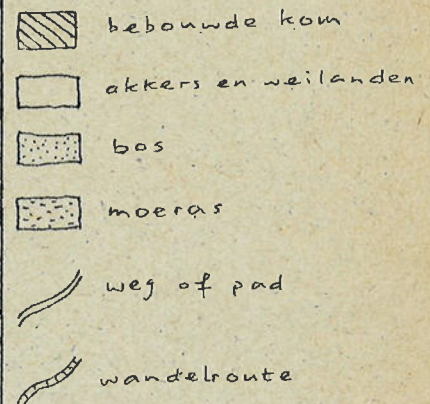 bebouwde kom
akkers en weilanden
bos
moeras
weg of pad
wandelroute